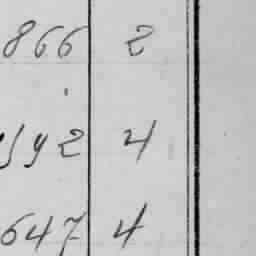 866 2
4
647 4